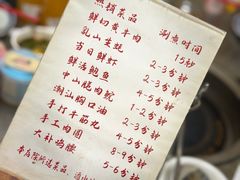 点菜品 涮煮时间
鲜切黄牛肉 15秒
乳山生蚝 2-3分钟
当日鲜虾 2-3分钟
鲜活鲍鱼 2-3分钟
中山脆肉鲩 4-5分钟
潮汕胸口油 1-2分钟
手打牛筋丸 4-5分钟
手工肉圆 8-9分钟
大补鸡 5-6分钟
本店